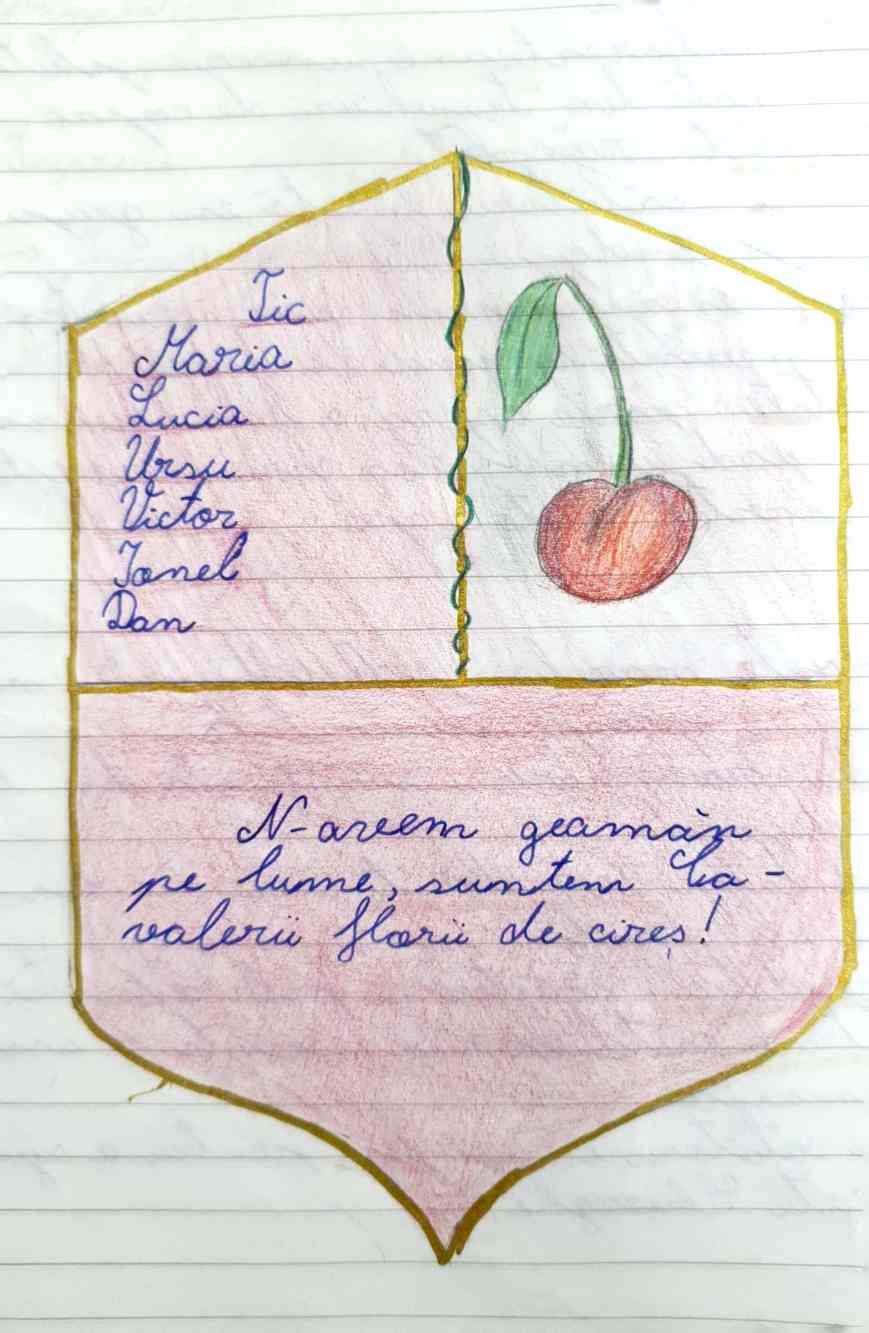 Tic
Maria
Lucia
Ursu
Victor
Ionel
Dan
N-avem geamăn
pe lume, suntem Ca-
valerii florii de cireș!